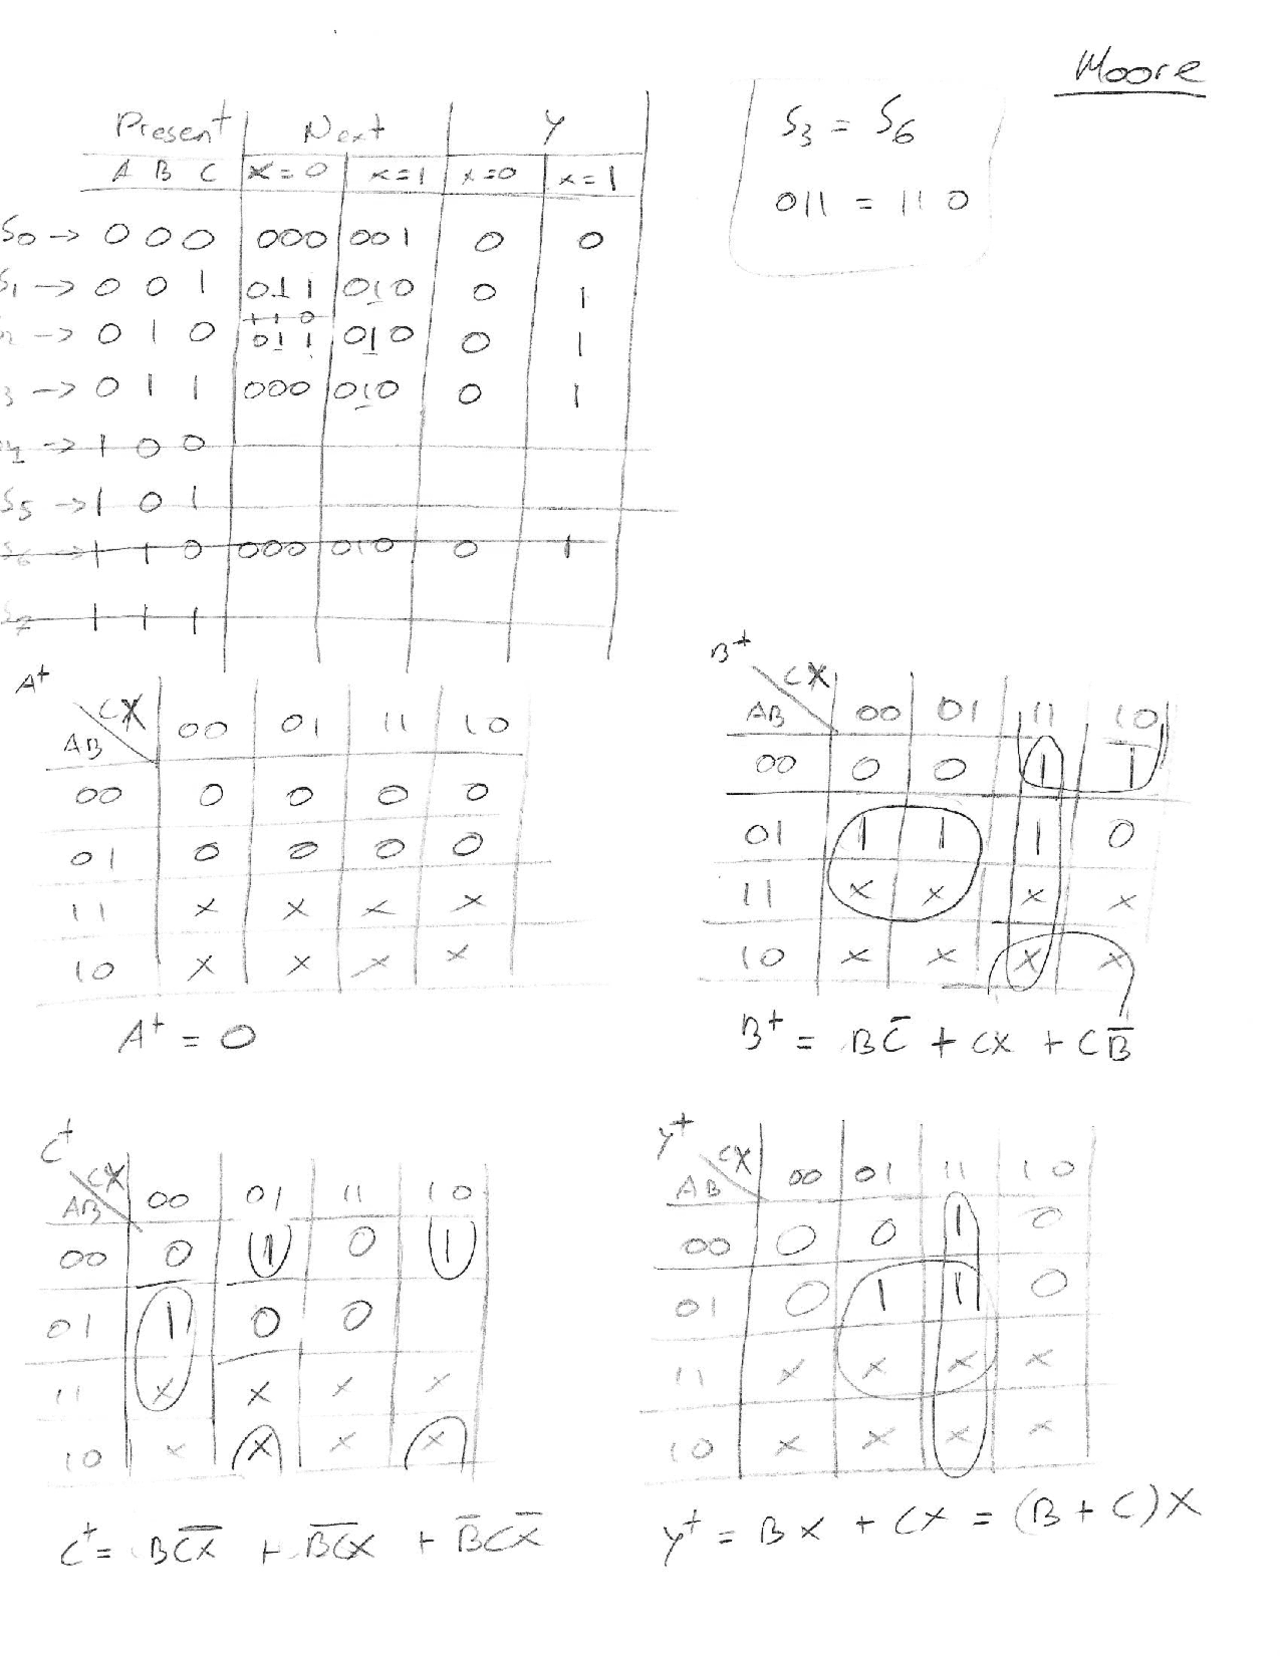 Moore
S3 = S6
011 = 110
Present Next Y
A B C x=0 x=1 x=0 x=1
S0 → 0 0 0 000 001 0 0
S1 → 0 0 1 011 010 0 1
110
→ 0 1 0 011 010 0 1
3 → 0 1 1 000 010 0 1
4 → 1 0 0
S5 → 1 0 1
S6 → 1 1 0 000 010 0 1
S7 1 1 1
A+
CX
AB 00 01 11 10
00 0 0 0 0
01 0 0 0 0
11 x x x x
10 x x x x
A+ = 0
B+
CX
AB 00 01 11 10
00 0 0 1 1
01 1 1 1 0
11 x x x x
10 x x x x
B+ = BC̅ + CX + CB̅
C+
CX
AB 00 01 11 10
00 0 1 0 1
01 1 0 0
11 x x x x
10 x x x x
C+ = BC̅X̅ + B̅C̅X + B̅CX̅
Y+
CX
AB 00 01 11 10
00 0 0 1 0
01 0 1 1 0
11 x x x x
10 x x x x
Y+ = BX + CX = (B + C)X